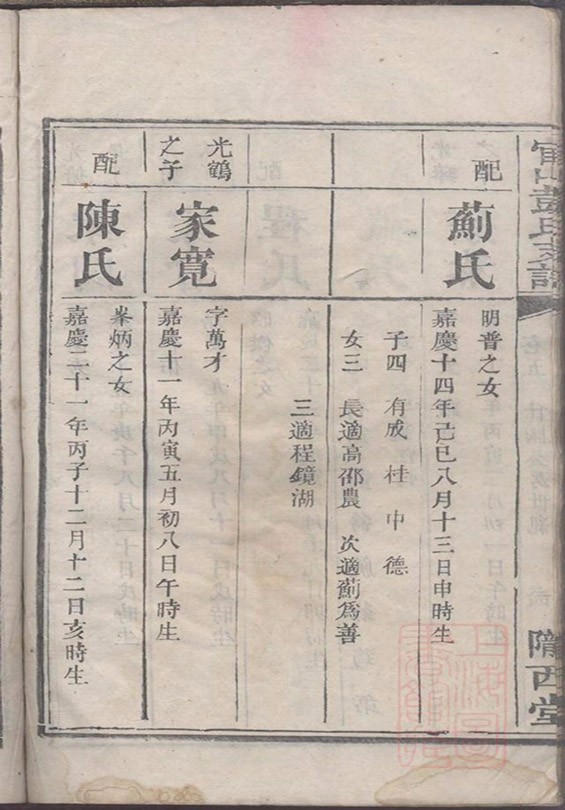 彭氏
隴西堂
配
薊氏
明普之女
嘉慶十四年己巳八月十三日申時生
子四 有成 桂 中 德
女三 長適高邵農 次適薊為善
三適程鏡湖
光鶴
之子
家寬
字萬才
嘉慶十一年丙寅五月初八日午時生
配
陳氏
岺炳之女
嘉慶二十一年丙子十二月十二日亥時生